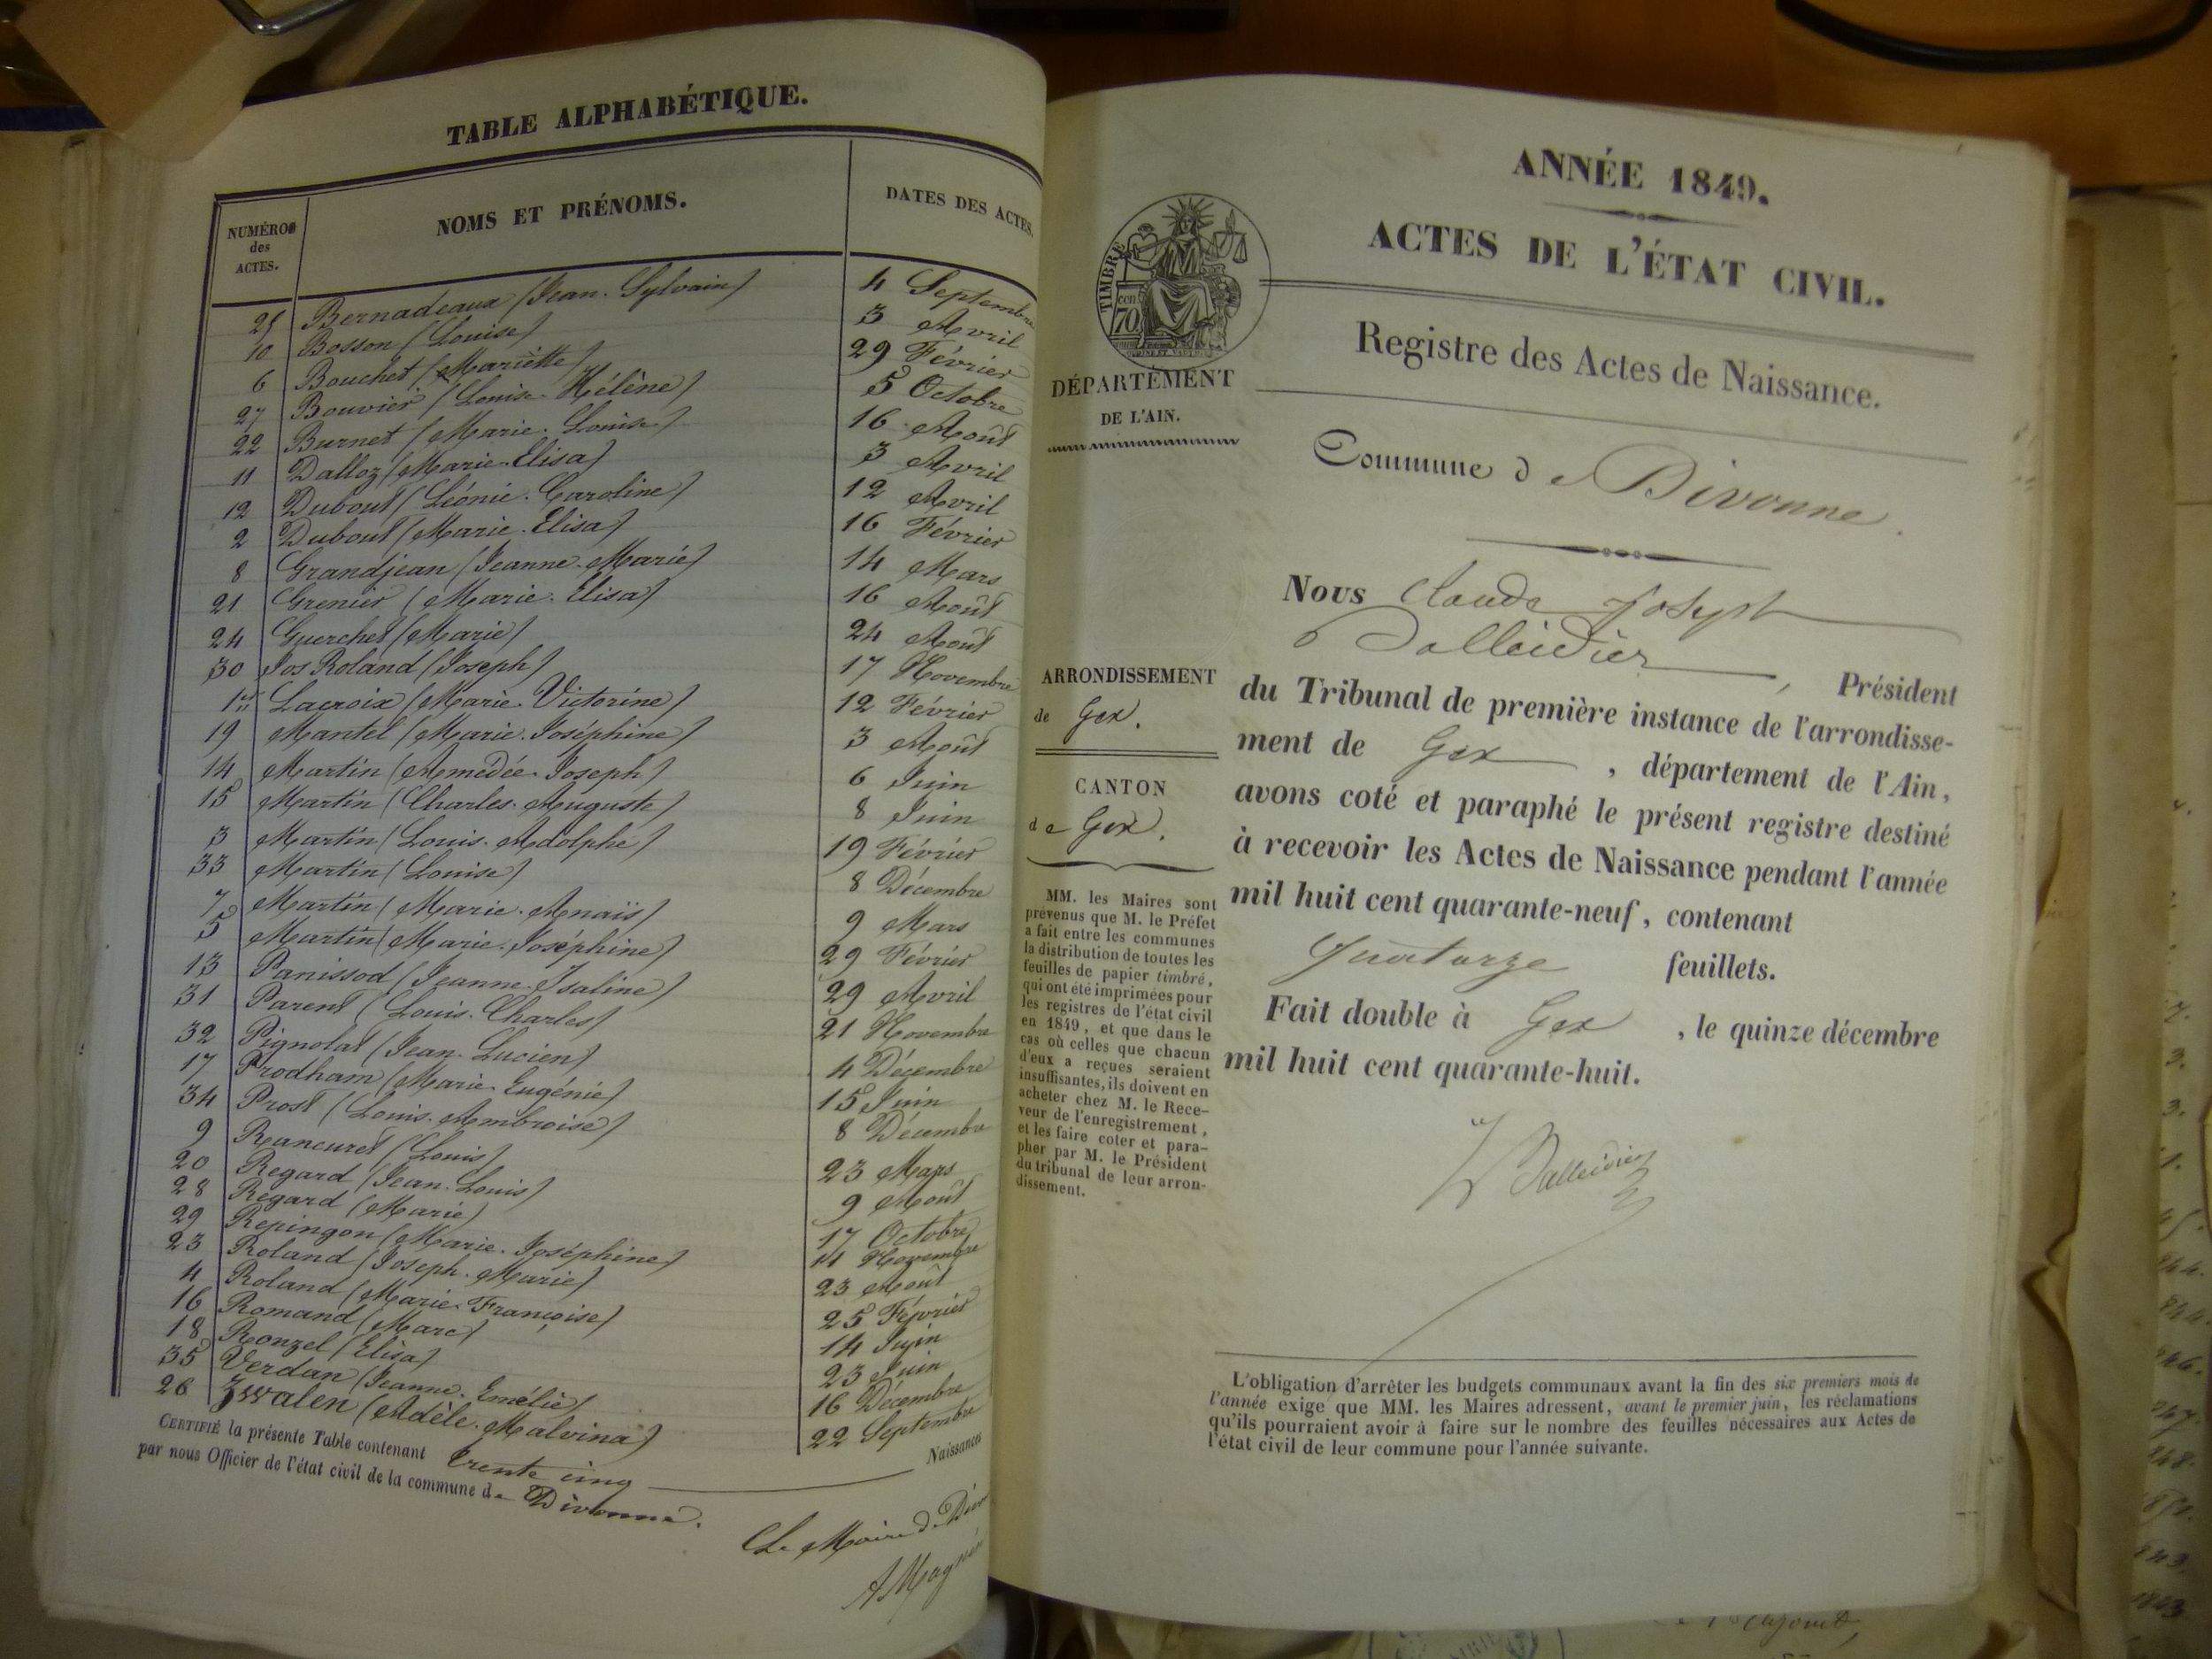 TABLE ALPHABÉTIQUE.
NUMÉROS des ACTES. NOMS ET PRÉNOMS. DATES DES ACTES.
25 Bernadeaux (Jean-Sylvain) 4 Septembre
10 Bosson (Louise) 3 Avril
6 Bouchet (Mariette) 29 Février
27 Bouvier (Louise-Hélène) 5 Octobre
22 Burnet (Marie-Louise) 16 Août
11 Dalloz (Marie-Elisa) 3 Avril
12 Dubout (Léonie-Caroline) 12 Avril
2 Dubout (Marie-Elisa) 16 Février
8 Grandjean (Jeanne-Marie) 14 Mars
21 Grenier (Marie-Elisa) 16 Août
24 Guerchet (Marie) 24 Août
30 Jos Roland (Joseph) 17 Novembre
1er Lacroix (Marie-Victorine) 12 Février
19 Mantel (Marie-Joséphine) 3 Août
14 Martin (Amédée-Joseph) 6 Juin
15 Martin (Charles-Auguste) 8 Juin
3 Martin (Louis-Adolphe) 19 Février
33 Martin (Louise) 8 Décembre
7 Martin (Marie-Anaïs) 9 Mars
5 Martin (Marie-Joséphine) 29 Février
13 Panissod (Jeanne-Isaline) 29 Avril
31 Parent (Louis-Charles) 21 Novembre
32 Pignolat (Jean-Lucien) 4 Décembre
17 Prodham (Marie-Eugénie) 15 Juin
34 Prost (Louis-Ambroise) 8 Décembre
9 Rancurel (Louis) 23 Mars
20 Regard (Jean-Louis) 9 Août
28 Regard (Marie) 17 Octobre
29 Repingon (Marie-Joséphine) 11 Novembre
23 Roland (Joseph-Marie) 23 Août
4 Roland (Marie-Françoise) 25 Février
16 Romand (Marc) 14 Juin
18 Ronzel (Elisa) 23 Juin
35 Verdan (Jeanne-Emélie) 16 Décembre
26 Zwalen (Adèle-Malvina) 22 Septembre
CERTIFIÉ la présente Table contenant Trente cinq Naissances
par nous Officier de l'état civil de la commune de Divonne.
Le Maire de Divon
A Magnin
ANNÉE 1849.
ACTES DE L'ÉTAT CIVIL.
Registre des Actes de Naissance.
TIMBRE
70
DÉPARTEMENT
DE L'AIN.
Commune de Divonne
ARRONDISSEMENT
de Gex.
CANTON
de Gex.
MM. les Maires sont
prévenus que M. le Préfet
a fait entre les communes
la distribution de toutes les
feuilles de papier timbré,
qui ont été imprimées pour
les registres de l'état civil
en 1849, et que dans le
cas où celles que chacun
d'eux a reçues seraient
insuffisantes, ils doivent en
acheter chez M. le Rece-
veur de l'enregistrement,
et les faire coter et para-
pher par M. le Président
du tribunal de leur arron-
dissement.
Nous Claude Joseph
Balleidier, Président
du Tribunal de première instance de l'arrondisse-
ment de Gex, département de l'Ain,
avons coté et paraphé le présent registre destiné
à recevoir les Actes de Naissance pendant l'année
mil huit cent quarante-neuf, contenant
Quatorze feuillets.
Fait double à Gex, le quinze décembre
mil huit cent quarante-huit.
Balleidier
L'obligation d'arrêter les budgets communaux avant la fin des six premiers mois de
l'année exige que MM. les Maires adressent, avant le premier juin, les réclamations
qu'ils pourraient avoir à faire sur le nombre des feuilles nécessaires aux Actes de
l'état civil de leur commune pour l'année suivante.